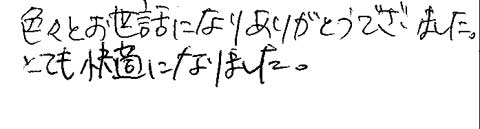 色々とお世話になりありがとうございました。
とても快適になりました。